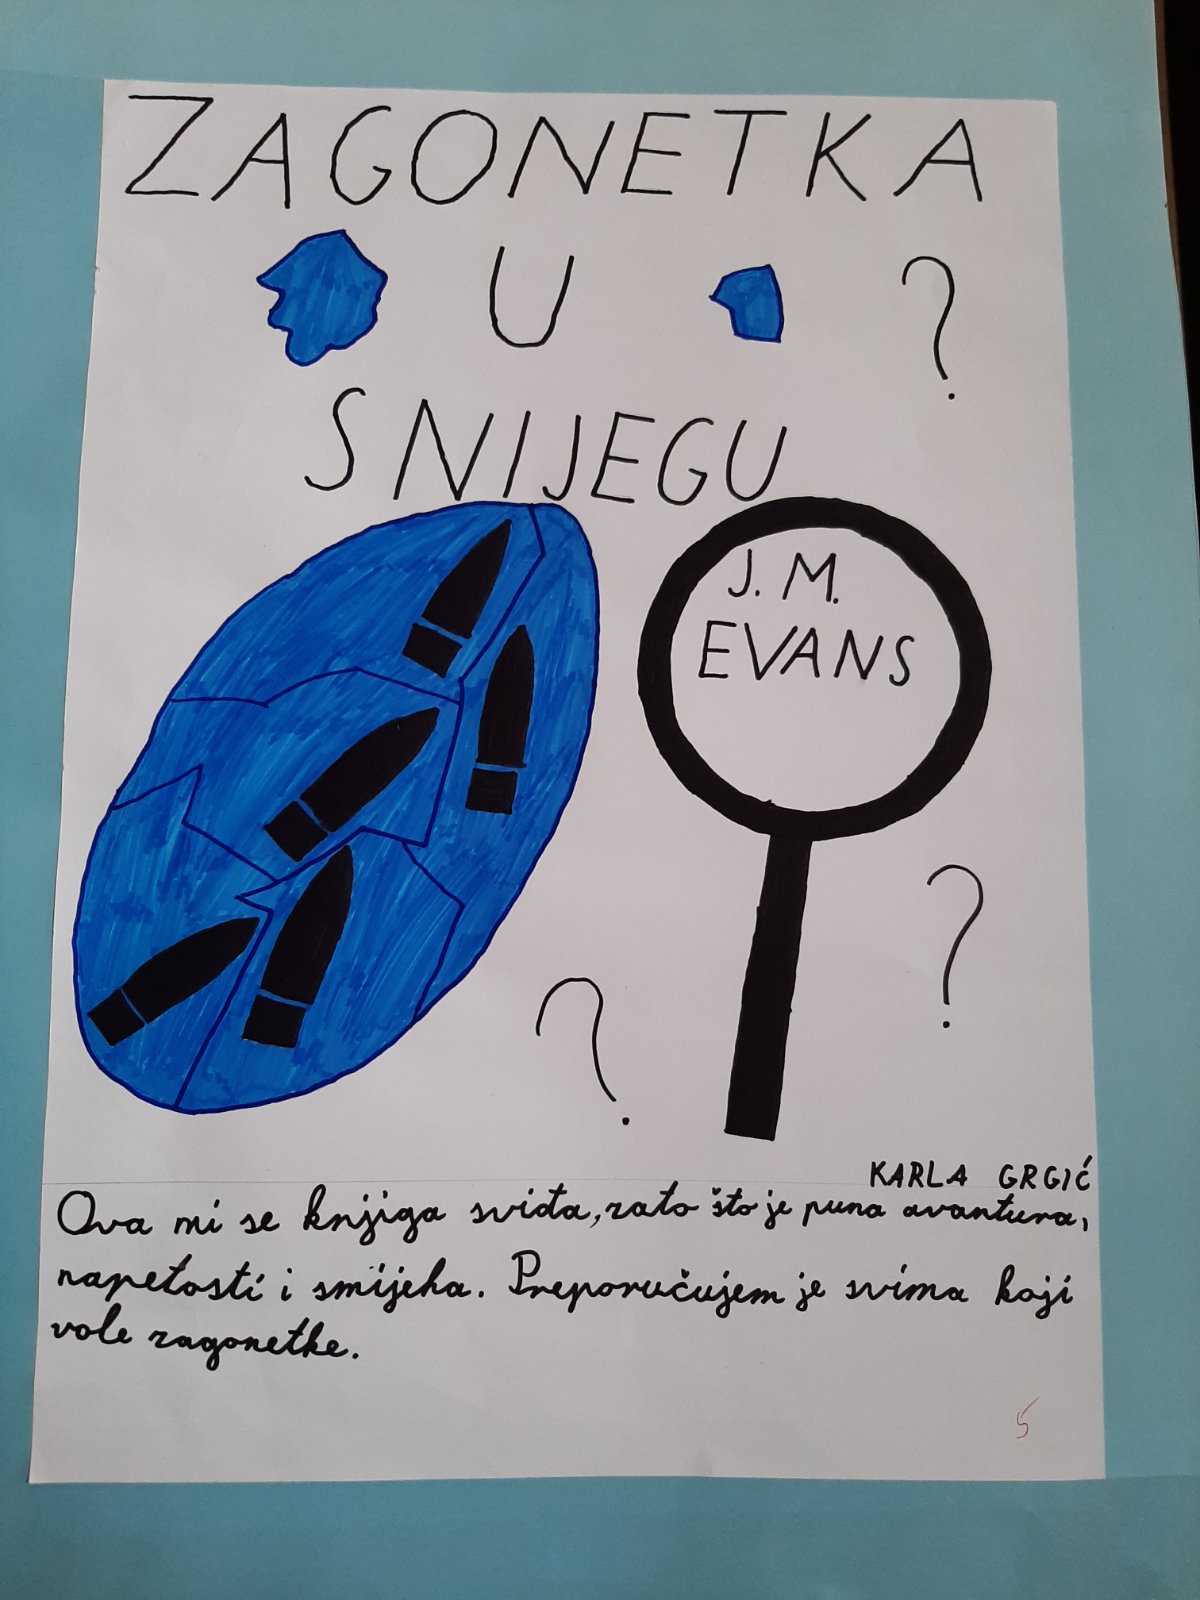 ZAGONETKA
U ?
SNIJEGU
J. M.
EVANS
?
?
KARLA GRGIĆ
Ova mi se knjiga sviđa, zato što je puna avantura,
napetosti i smijeha. Preporučujem je svima koji
vole zagonetke.
5